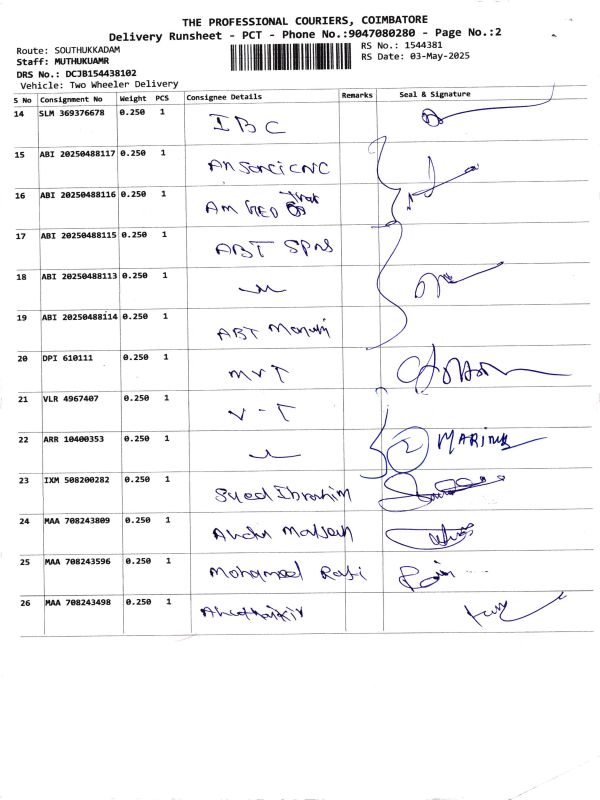 THE PROFESSIONAL COURIERS, COIMBATORE
Delivery Runsheet - PCT - Phone No.:9047080280 - Page No.:2
Route: SOUTHUKKADAM
RS No.: 1544381
Staff: MUTHUKUAMR
RS Date: 03-May-2025
DRS No.: DCJB154438102
Vehicle: Two Wheeler Delivery
S No Consignment No Weight PCS Consignee Details Remarks Seal & Signature
14 SLM 369376678 0.250 1 IBC
15 ABI 20250488117 0.250 1
16 ABI 20250488116 0.250 1
17 ABI 20250488115 0.250 1 ABT SPNS
18 ABI 20250488113 0.250 1
19 ABI 20250488114 0.250 1 ABT
20 DPI 610111 0.250 1 MVT
21 VLR 4967407 0.250 1 V-T
22 ARR 10400353 0.250 1 MARINE
23 IXM 508200282 0.250 1 Syed Ibrahim
24 MAA 708243809 0.250 1
25 MAA 708243596 0.250 1 Mohamed Rafi
26 MAA 708243498 0.250 1